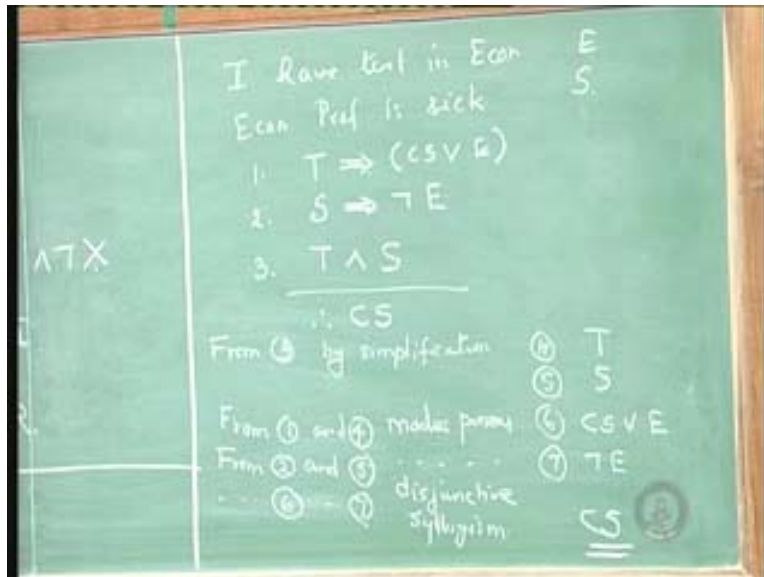 ∧¬X
I have test in Econ E
Econ Prof is sick S.
1. T ⇒ (CS ∨ E)
2. S ⇒ ¬E
3. T ∧ S
∴ CS
From ③ by simplification ④ T
⑤ S
From ① and ④ modus ponens ⑥ CS ∨ E
From ② and ⑤ ..... ⑦ ¬E
.... ⑥ .. ⑦ disjunctive
syllogism CS